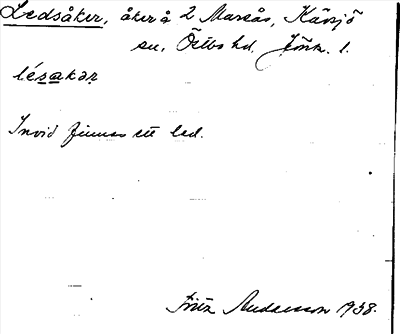 Ledsåker, åker å 2 Marsås, Kävsjö
sn, Östbo hd, Jönk. l.
lésakər
Invid finnes ett led.
Fritz Andersson 1938.